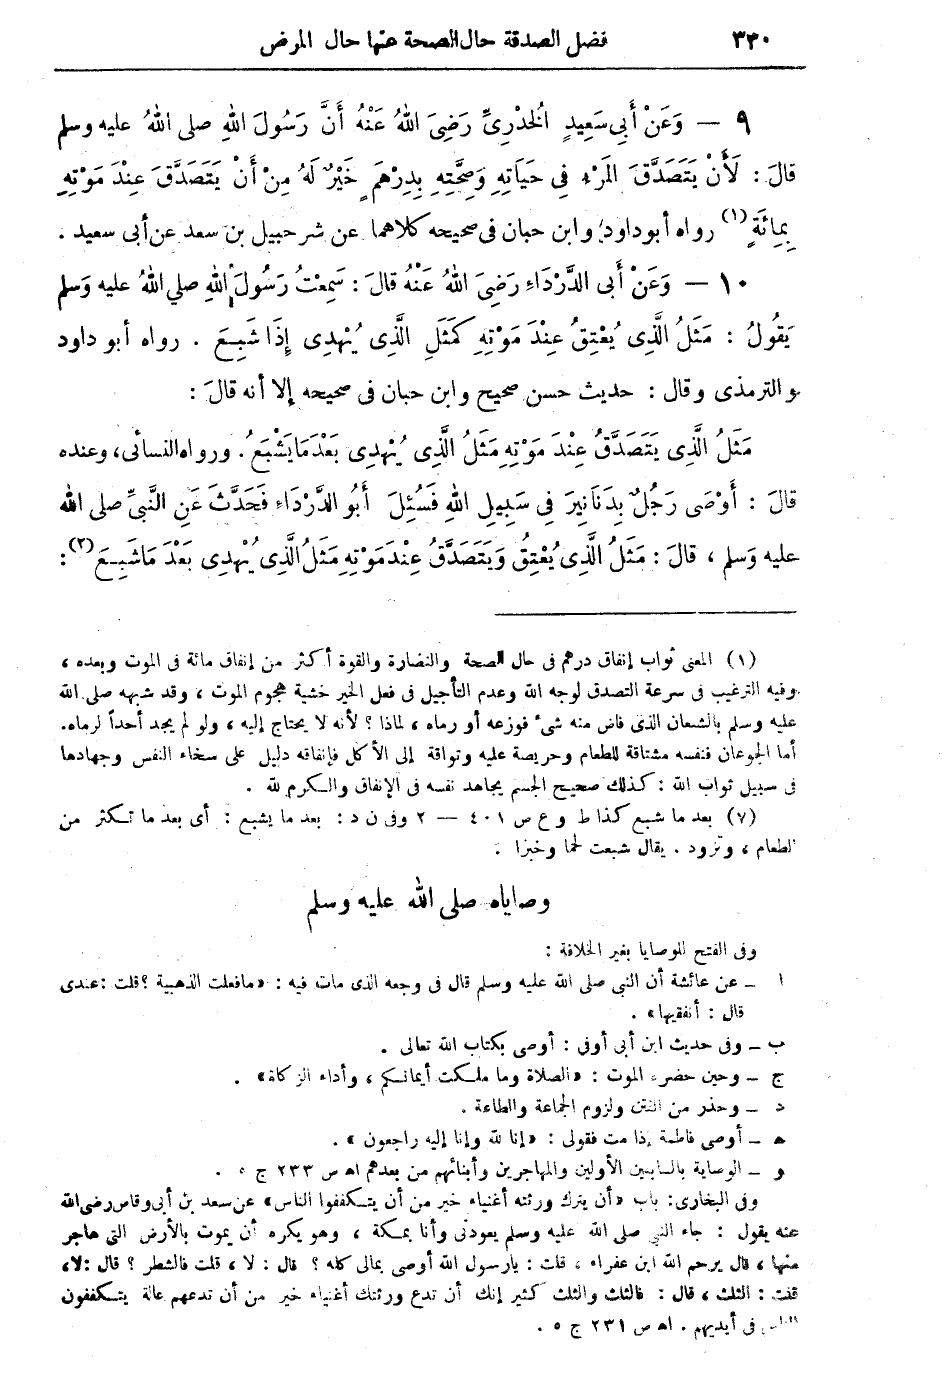 ٣٣٠ فضل الصدقة حال الصحة عنها حال المرض
٩ — وَعَنْ أَبِي سَعِيدٍ الْخُدْرِىِّ رَضِىَ اللهُ عَنْهُ أَنَّ رَسُولَ اللهِ صلى اللهُ عليه وسلم
قالَ : لَأَنْ يَتَصَدَّقَ المَرْءُ فِى حَيَاتِهِ وَصِحَّتِهِ بِدِرْهَمٍ خَيْرٌ لَهُ مِنْ أَنْ يَتَصَدَّقَ عِنْدَ مَوْتِهِ
بِمِائَةٍ (١) رواه أبو داود، وابن حبان فى صحيحه كلاهما عن شرحبيل بن سعد عن أبى سعيد .
١٠ — وَعَنْ أَبى الدَّرْدَاءِ رَضِىَ اللهُ عَنْهُ قالَ : سَمِعْتُ رَسُولَ اللهِ صلي اللهُ عليه وَسلم
يَقُولُ : مَثَلُ الَّذِى يُعْتِقُ عِنْدَ مَوْتِهِ كَمَثَلِ الَّذِى يُهْدِى إِذَا شَبِعَ . رواه أبو داود
والترمذى وقال : حديث حسن صحيح وابن حبان فى صحيحه إلا أنه قالَ :
مَثَلُ الَّذِى يَتَصَدَّقُ عِنْدَ مَوْتِهِ مَثَلُ الَّذِى يُهْدِى بَعْدَ مَا يَشْبَعُ . ورواه النسائى، وعنده
قالَ : أَوْصَى رَجُلٌ بِدَنَانِيرَ فِى سَبِيلِ اللهِ فَسُئِلَ أَبُو الدَّرْدَاءِ فَحَدَّثَ عَنِ النَّبِىِّ صلى الله
عليه وَسلم ، قالَ : مَثَلُ الَّذِى يُعْتِقُ وَيَتَصَدَّقُ عِنْدَ مَوْتِهِ مَثَلُ الَّذِى يُهْدِى بَعْدَ مَا شَبِعَ (٢) :
(١) المعنى ثواب إنفاق درهم فى حال الصحة والنضارة والقوة أكثر من إنفاق مائة فى الموت وبعده ،
وفيه الترغيب فى سرعة التصدق لوجه الله وعدم التأجيل فى فعل الخير خشية هجوم الموت ، وقد شبهه صلى الله
عليه وسلم بالشبعان الذى فاض منه شىء فوزعه أو رماه ، لماذا ؟ لأنه لا يحتاج إليه ، ولو لم يجد أحداً لرماه.
أما الجوعان فنفسه مشتاقة للطعام وحريصة عليه وتواقة إلى الأكل فإنفاقه دليل على سخاء النفس وجهادها
فى سبيل ثواب الله : كذلك صحيح الجسم يجاهد نفسه فى الإنفاق والكرم لله .
(٢) بعد ما شبع كذا ط و ع ص ٤٠١ — ٢ وفى ن د : بعد ما يشبع : أى بعد ما تكثر من
الطعام ، وتزود . يقال شبعت لحما وخبزا .
وصاياه صلى الله عليه وسلم
وفى الفتح للوصايا بغير الخلافة :
ا ــ عن عائشة أن النبى صلى الله عليه وسلم قال فى وجعه الذى مات فيه : «ما فعلت الذهيبة ؟ قلت : عندى
قال : أنفقيها» .
ب ــ وفى حديث ابن أبى أوفى : أوصى بكتاب الله تعالى .
ج ــ وحين حضره الموت : «الصلاة وما ملكت أيمانكم ، وأداء الزكاة» .
د ــ وحذر من الفتن ولزوم الجماعة والطاعة .
ه ــ أوصى فاطمة إذا مت فقولى : «إنا لله وإنا إليه راجعون» .
و ــ الوصاية بالسابقين الأولين والمهاجرين وأبنائهم من بعدهم اه ص ٢٣٣ ج ٥ .
وفى البخارى : باب «أن يترك ورثته أغنياء خير من أن يتكففوا الناس» عن سعد بن أبى وقاص رضى الله
عنه يقول : جاء النبى صلى الله عليه وسلم يعودنى وأنا بمكة ، وهو يكره أن يموت بالأرض التى هاجر
منها ، قال يرحم الله ابن عفراء ، قلت : يارسول الله أوصى بمالى كله ؟ قال : لا ، قلت فالشطر ؟ قال : لا،
قلت : الثلث ، قال : فالثلث والثلث كثير إنك أن تدع ورثتك أغنياء خير من أن تدعهم عالة يتكففون
الناس فى أيديهم . اه ص ٢٣١ ج ٥ .